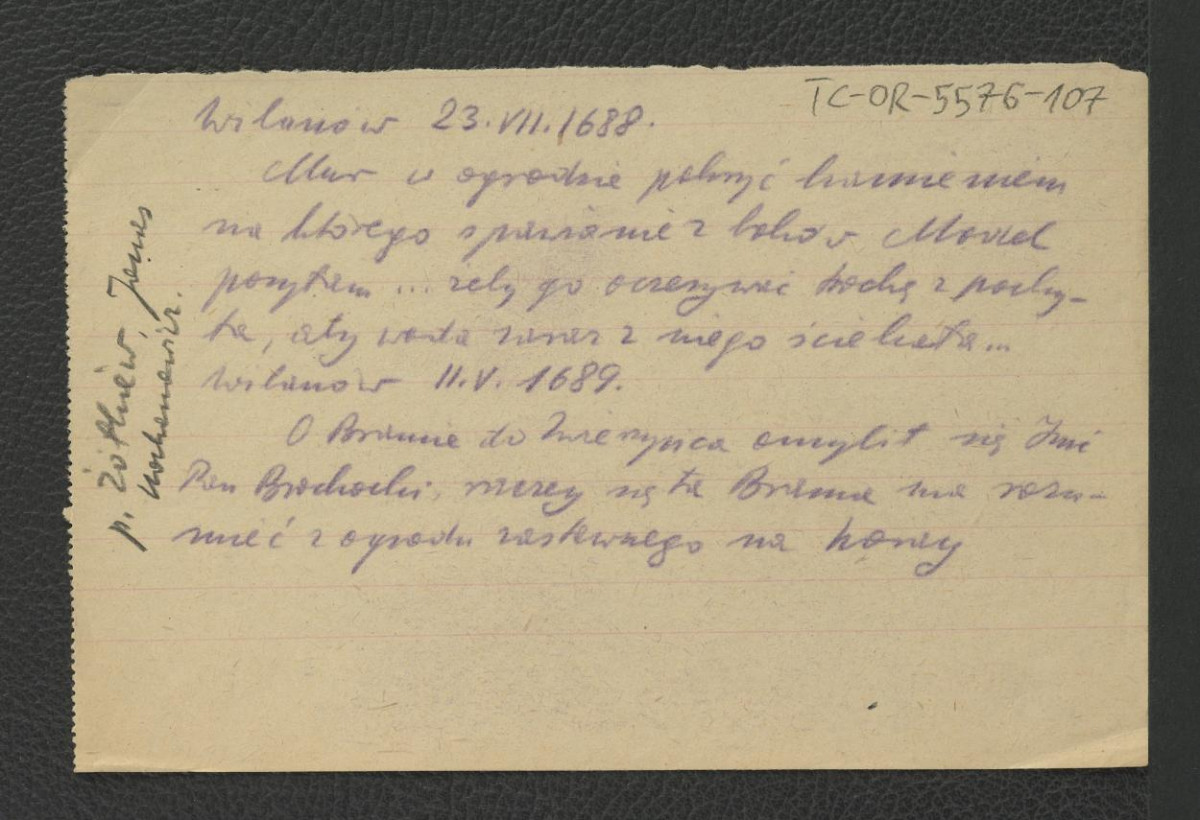 TC-OR-5576-107
Wilanów 23.VII.1688.
Mur w ogrodzie pokryć kamieniem
na którego spawanie z boków Model
posyłam ... żeby go oczesywać trochę z pochy-
ła, aby woda zaraz z niego ściekała...
Wilanów 11.V.1689.
O Bramie do Zwierzyńca omylił się Jmć
Pan Brochocki, raczey się ta Brama ma rozu-
mieć z ogrodu zastawnego na
p. Żółkiew, Janas
Kochanowicz.